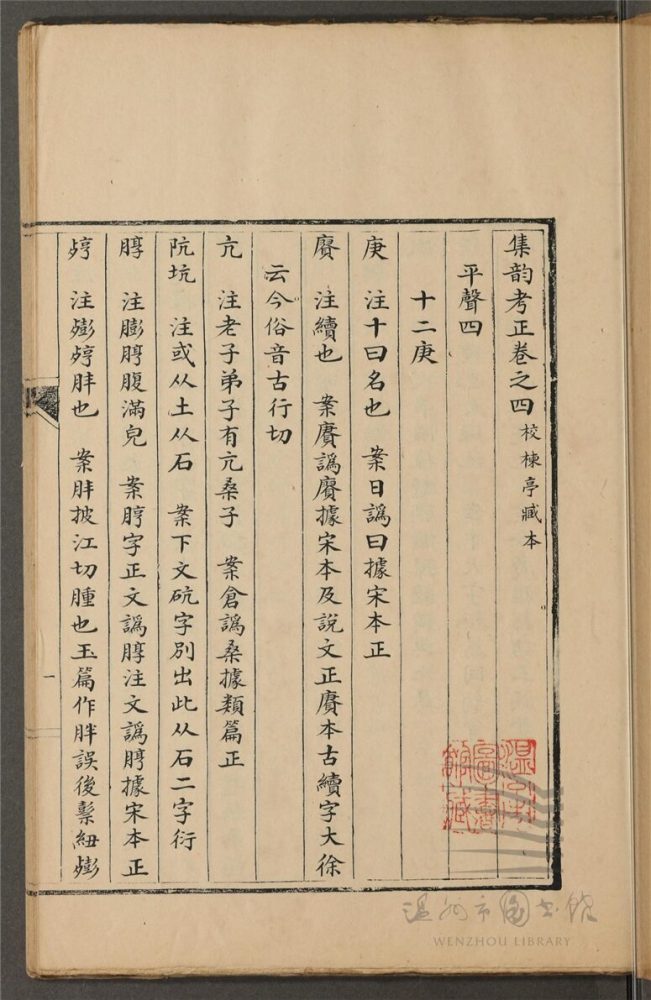 集韵考正卷之四 校楝亭臧本
平聲四
十二庚
庚 注十曰名也 案日譌曰據宋本正
賡 注續也 案賡譌賡據宋本及說文正賡本古續字大徐
云今俗音古行切
亢 注老子弟子有亢桑子 案倉譌桑據類篇正
阬坑 注或从土从石 案下文硁字別出此从石二字衍
脝 注膨脝腹滿皃 案脝字正文譌朜注文譌脝據宋本正
㱶 注㱶胖也 案胖披江切腫也玉篇作胖誤後紐
一
溫州市圖書館藏
温州市图书馆
WENZHOU LIBRARY